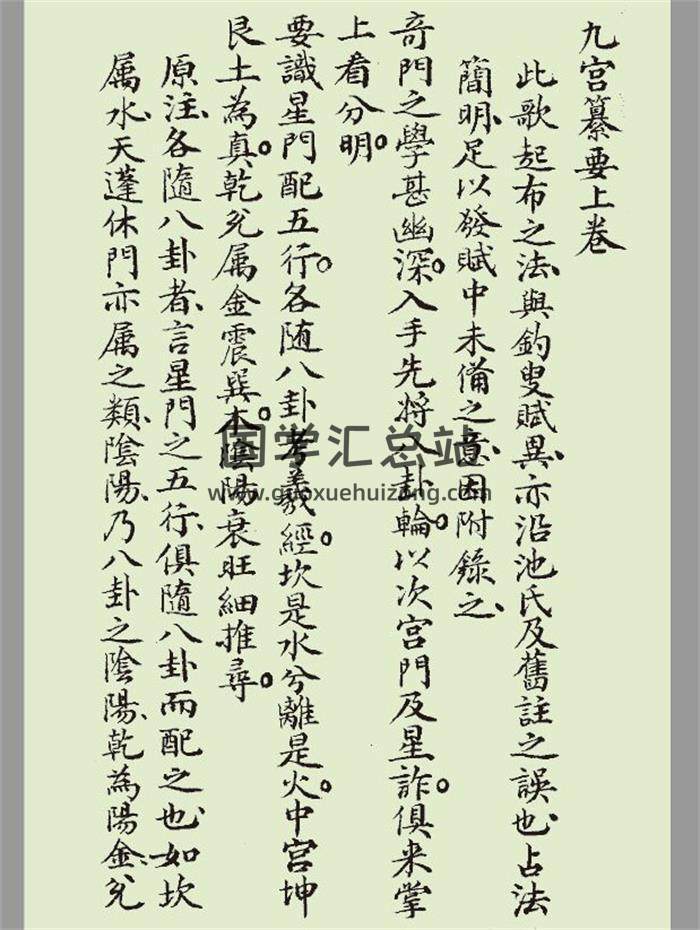 九宫纂要上卷
此歌起布之法、與釣叟賦異、亦沿池氏及舊註之誤也、占法
簡明、足以發賦中未備之意、因附錄之、
奇門之學甚幽深。入手先將八卦輪。以次宫門及星詐。俱来掌
上看分明。
要識星門配五行。各随八卦考羲經。坎是水兮離是火。中宫坤
艮土為真。乾兊属金震巽木。陰陽衰旺細推尋。
原注、各隨八卦者、言星門之五行、俱隨八卦而配之也、如坎
属水、天蓬休門亦属之類、陰陽、乃八卦之陰陽、乾為陽金、兊
国学汇总站
www.guoxuehuizong.com